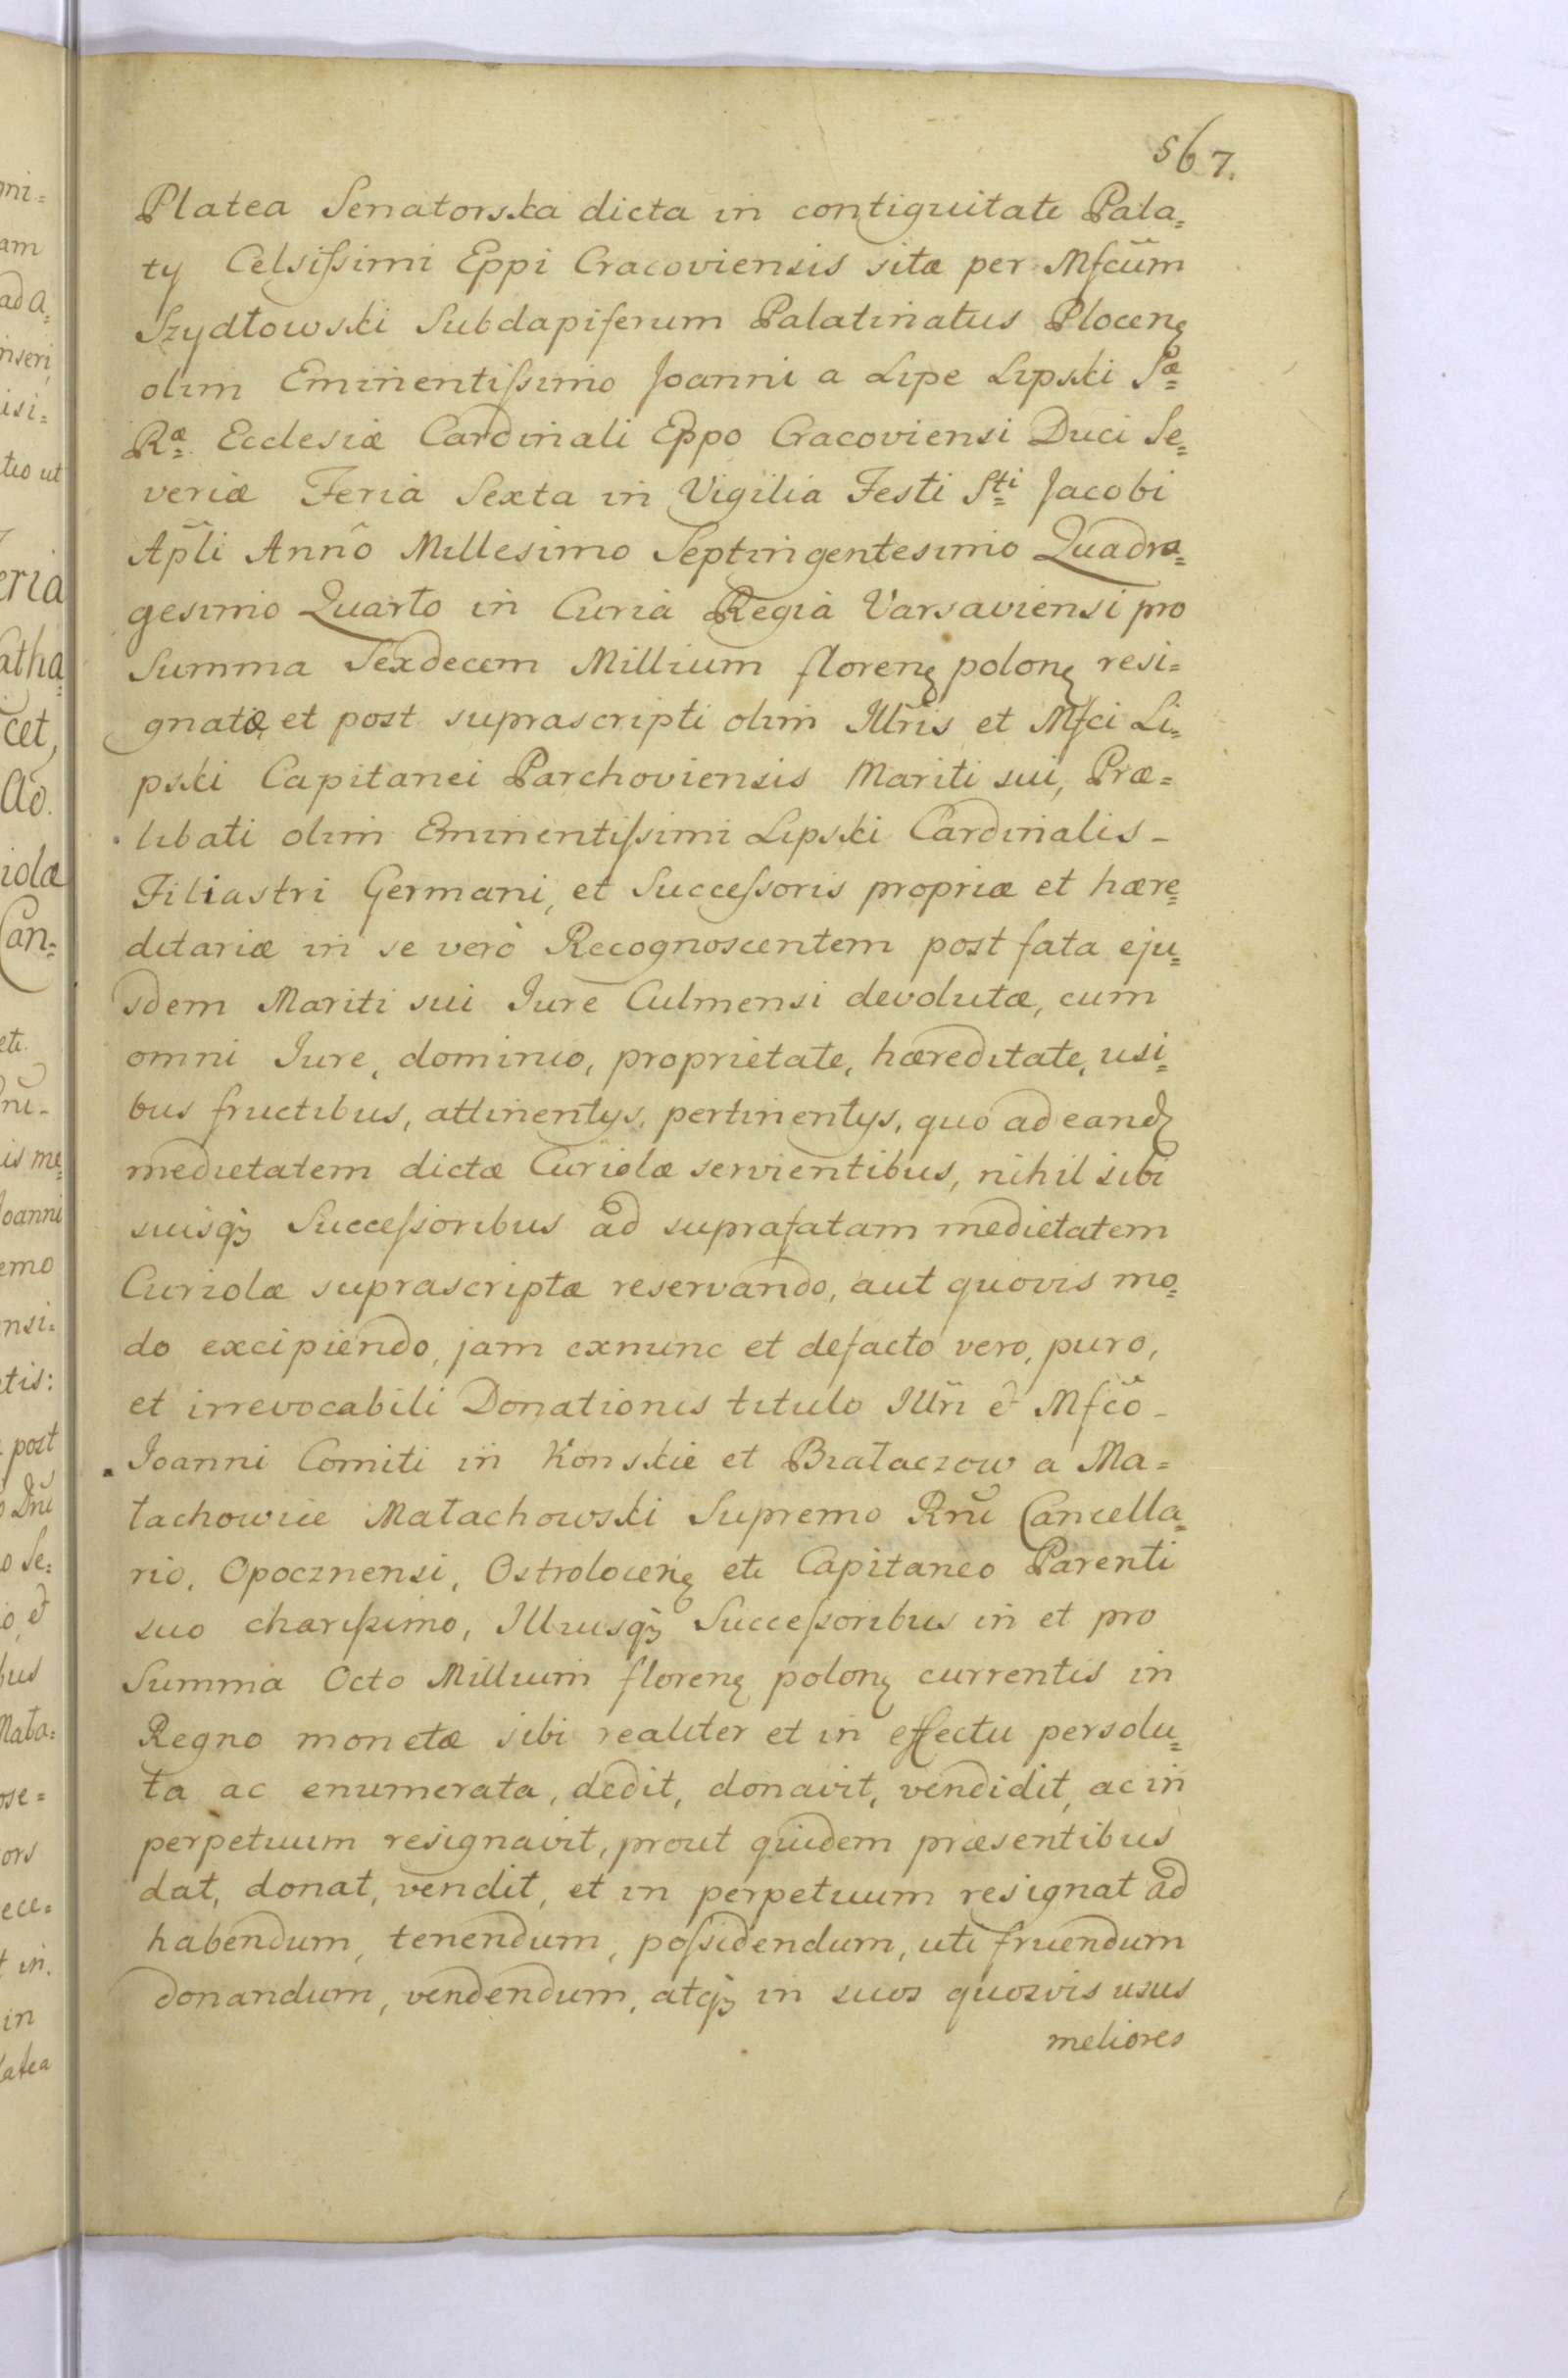 567.
Platea Senatorska dicta in contiguitate Pala=
ty Celsissimi Eppi Cracoviensis sitæ per Mfcum̃
Szydłowski Subdapiferum Palatinatus Plocenꝫ
olim Eminentissimo Joanni a Lipe Lipski Sæ
Ræ Ecclesiæ Cardinali Eppo Cracoviensi Duci Se=
veriæ Feria Sexta in Vigilia Festi Sti Jacobi
Apl̃i Anno Millesimo Septingentesimo Quadra=
gesimo Quarto in Curia Regia Varsaviensi pro
Summa Sexdecem Millium florenꝫ polonꝫ resi=
gnatæ, et post suprascripti olim Illris et Mfci Li=
pski Capitanei Parchoviensis Mariti sui, Præ=
libati olim Eminentissimi Lipski Cardinalis -
Filiastri Germani, et Successoris propriæ et hære=
ditariæ in se verò Recognoscentem post fata eju=
sdem Mariti sui Jure Culmensi devolutæ, cum
omni Jure, dominio, proprietate, hæreditate, usi=
bus fructibus, attinentys, pertinentys, quo ad eandꝫ
medietatem dictæ Curiolæ servientibus, nihil sibi
suisqꝫ Successoribus ad suprafatam medietatem
Curiolæ suprascriptæ reservando, aut quovis mo=
do excipiendo, jam exnunc et defacto vero, puro,
et irrevocabili Donationis titulo Illri et Mfco -
Joanni Comiti in Konskie et Białaczow a Ma=
łachowice Małachowski Supremo Rni Cancella=
rio, Opocznensi, Ostrolocenꝫ etc Capitaneo Parenti
suo charissimo, Illiusqꝫ Successoribus in et pro
Summa Octo Millium florenꝫ polonꝫ currentis in
Regno monetæ sibi realiter et in effectu persolu=
ta ac enumerata, dedit, donavit, vendidit, ac in
perpetuum resignavit, prout quidem præsentibus
dat, donat, vendit, et in perpetuum resignat ad
habendum, tenendum, possidendum, uti fruendum
donandum, vendendum, atqꝫ in suos quosvis usus
meliores